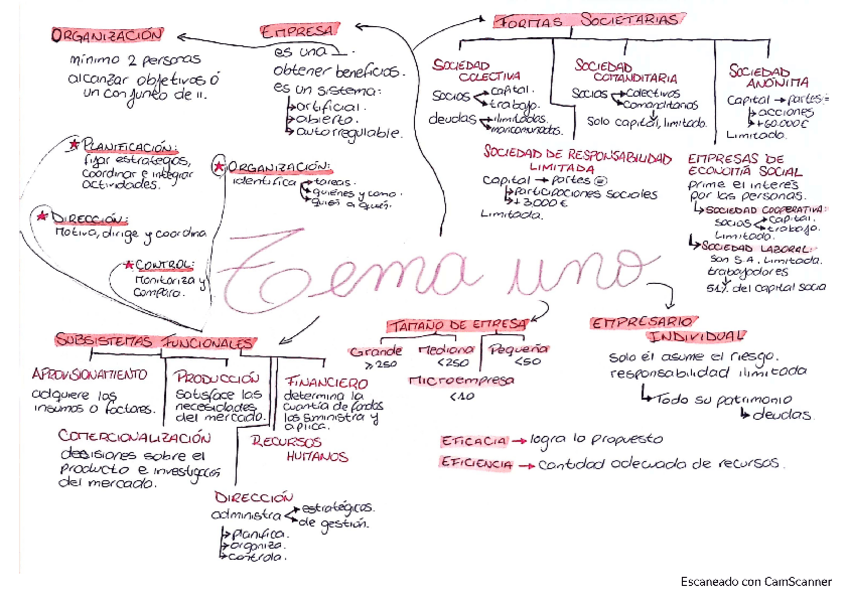 ORGANIZACIÓN
mínimo 2 personas
alcanzar objetivos ó
un conjunto de ll.
EMPRESA
es una ⊥.
obtener beneficios.
es un sistema:
↳ artificial.
↳ abierto.
↳ autorregulable.
FORMAS SOCIETARIAS
SOCIEDAD
COLECTIVA
Socios capital.
trabajo.
deudas ilimitadas.
mancomunadas.
SOCIEDAD
COMANDITARIA
Socios colectivos
comanditarios
Solo capital, limitado.
SOCIEDAD
ANÓNIMA
Capital → partes =
↳ acciones
↳ +60.000€
Limitado.
SOCIEDAD DE RESPONSABILIDAD
LIMITADA
Capital → partes =
↳ participaciones sociales
↳ +3,000€
Limitada.
EMPRESAS DE
ECONOMÍA SOCIAL
prime el interés
por las personas.
↳ SOCIEDAD COOPERATIVA:
socios capital.
trabajo.
Limitado.
↳ SOCIEDAD LABORAL:
Son S.A. Limitada.
trabajadores
51% del capital socia
★ PLANIFICACIÓN:
fijar estrategas,
coordinar e integrar
actividades.
★ ORGANIZACIÓN:
identifica tareas.
quiénes y como.
quién a quién.
★ DIRECCIÓN:
Motiva, dirige y coordina
★ CONTROL:
Monitoriza y
Compara.
Tema uno
SUBSISTEMAS FUNCIONALES
APROVISIONAMIENTO
adquiere las
insumos o factores.
PRODUCCIÓN
satisface las
necesidades
del mercado.
FINANCIERO
determina la
cuantía de fondos
los suministra y
aplica.
COMERCIALIZACIÓN
decisiones sobre el
producto e investigacas
del mercado.
RECURSOS
HUMANOS
DIRECCIÓN
administra estratégicos.
de gestión.
↳ planifica.
↳ organiza.
↳ controla.
TAMAÑO DE EMPRESA
Grande
≥250
Mediana
<250
Pequeña
<50
Microempresa
<10
EMPRESARIO
INDIVIDUAL
Solo él asume el riesgo.
responsabilidad ilimitada
↳ Todo su patrimonio
↳ deudas.
EFICACIA → logra lo propuesto
EFICIENCIA → cantidad adecuada de recursos.
Escaneado con CamScanner